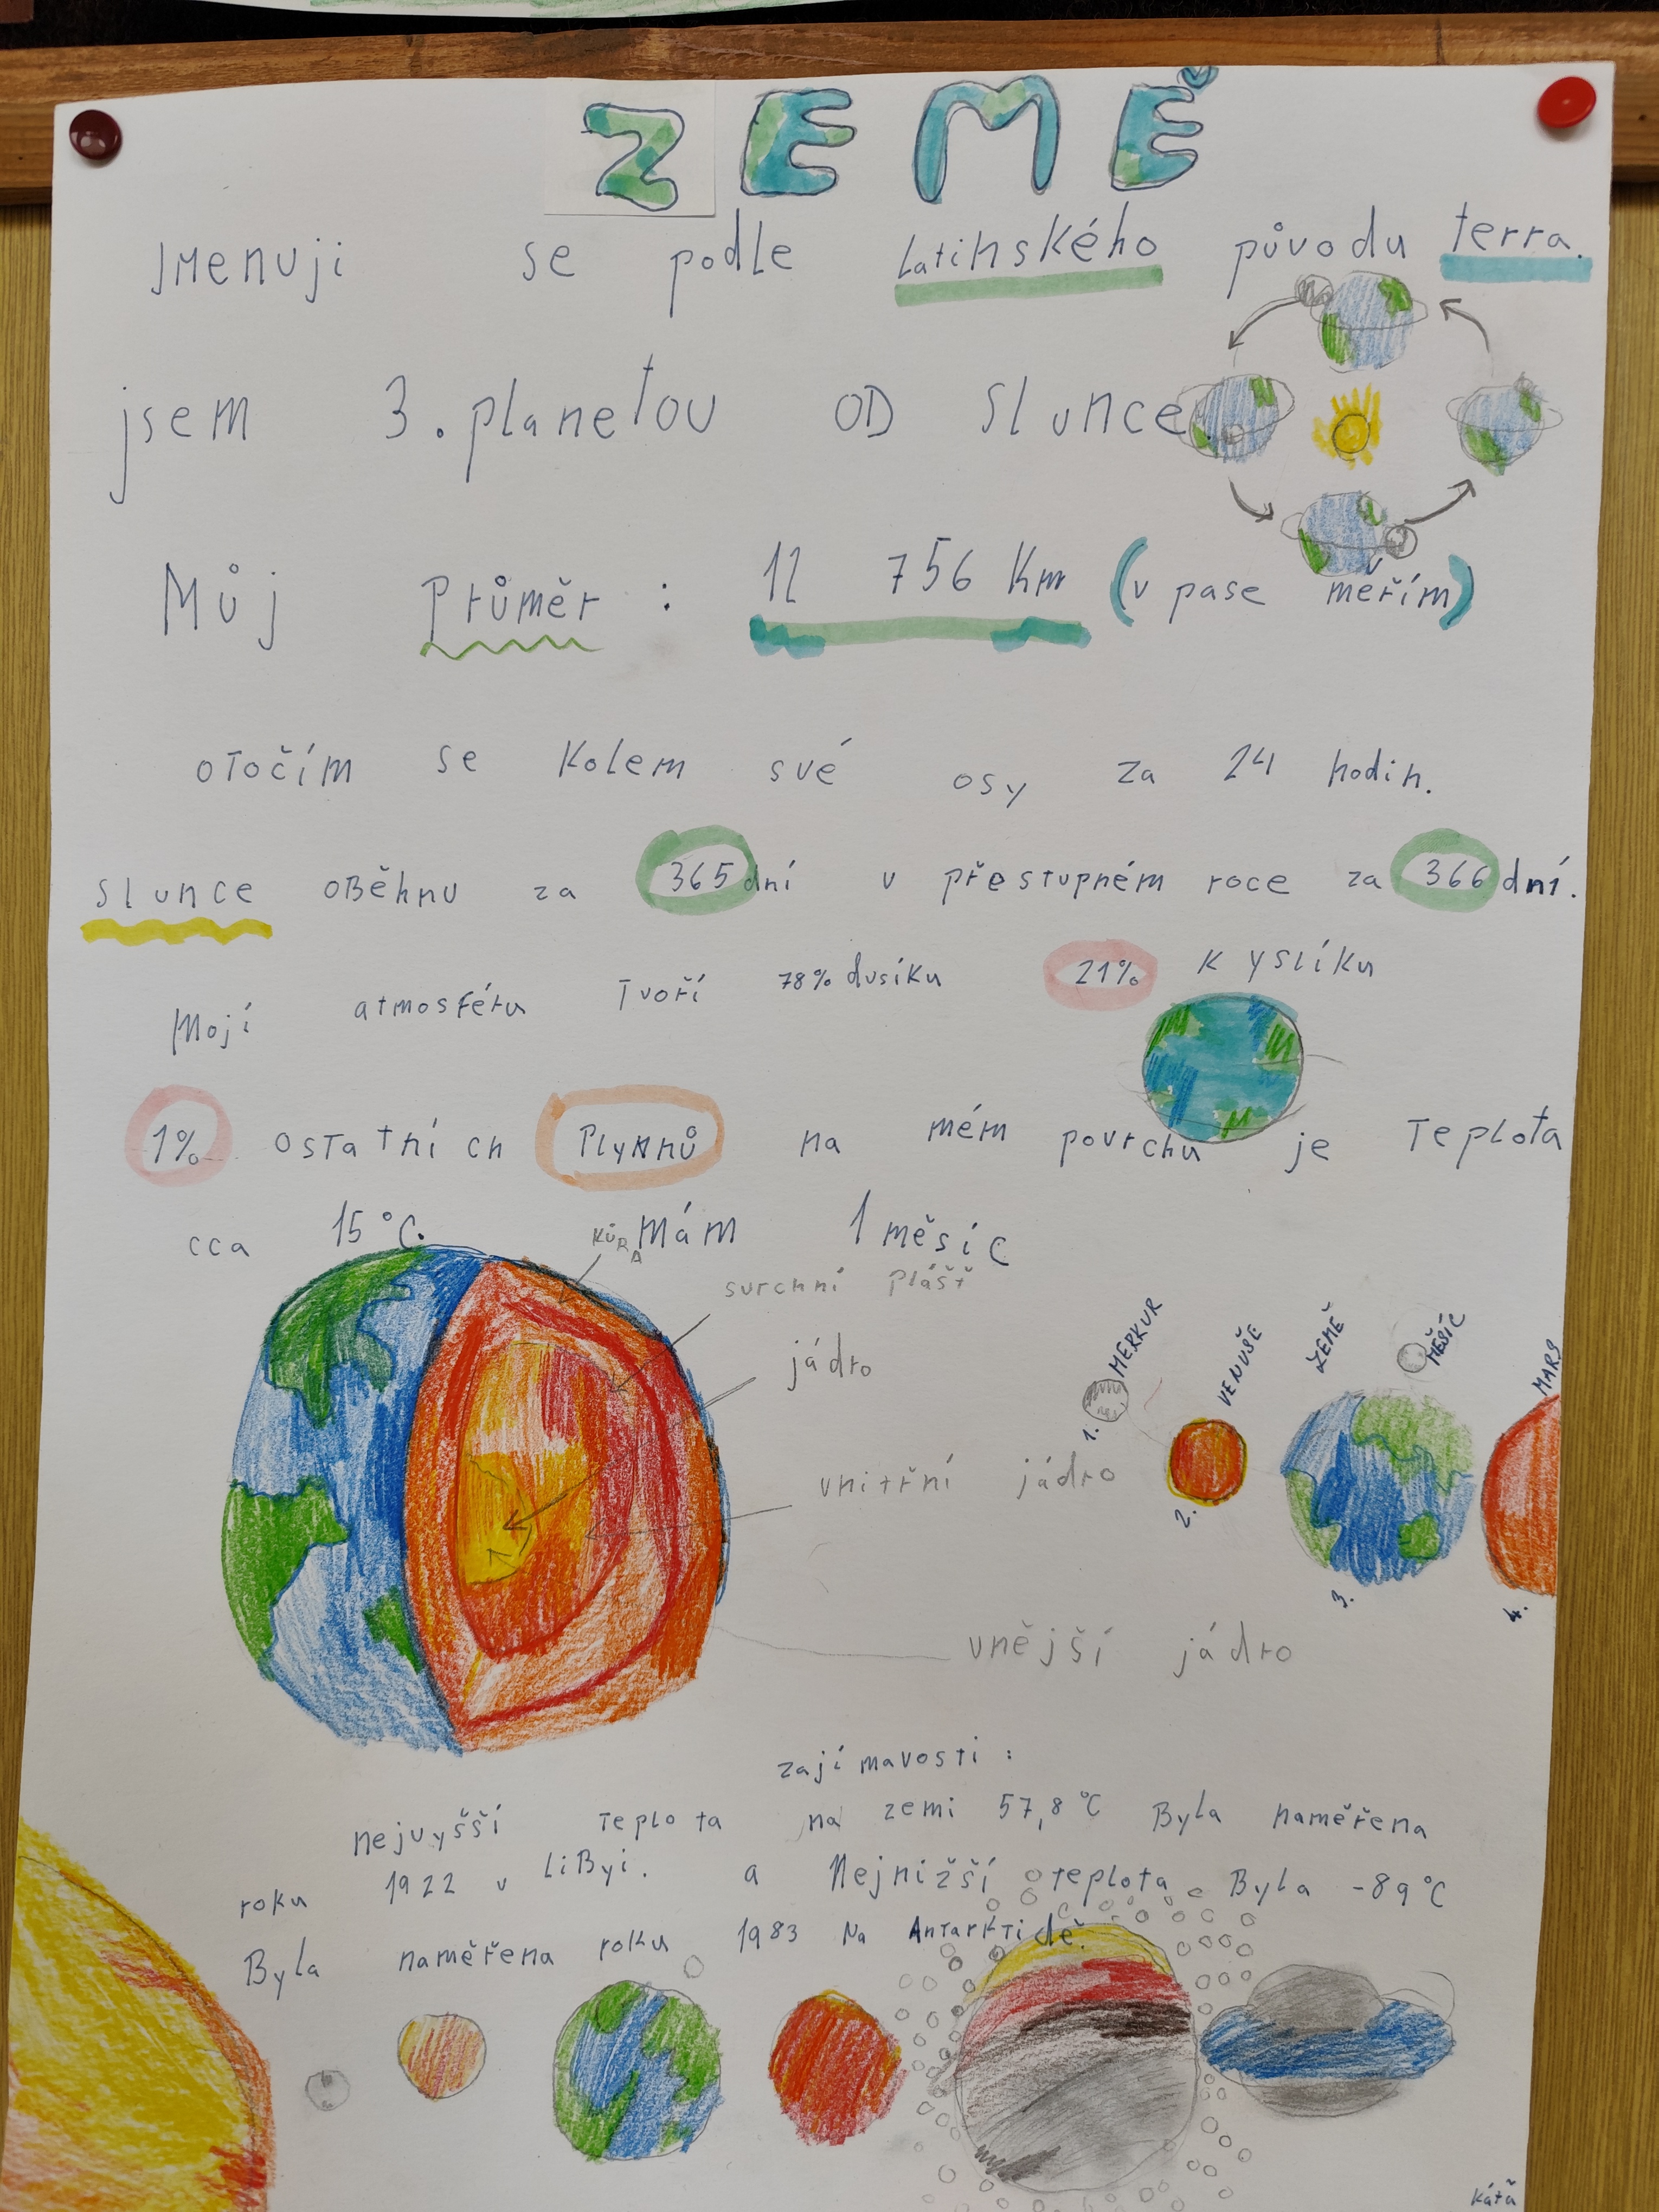 ZEMĚ
Jmenuji se podle latinského původu terra.
jsem 3. planetou OD slunce.
Můj průměr : 12 756 Km (v pase měřím)
otočím se kolem své osy za 24 hodin.
slunce oběhnu za 365 dní v přestupném roce za 366 dní.
Mojí atmosféru Tvoří 78% dusíku 21% kyslíku
1% ostatních Plynnů na mém povrchu je Teplota
cca 15°C. mám 1 měsíc
KŮRA
svrchní plášť
jádro
vnitřní jádro
vnější jádro
1. MERKUR
2. VENUŠE
3. ZEMĚ
MĚSÍC
4. MARS
zajímavosti :
nejvyšší Teplota na zemi 57,8°C Byla naměřena
roku 1922 v LiByi. a Nejnižší teplota Byla -89°C
Byla naměřena roku 1983 Na Antarktidě.
Káťa